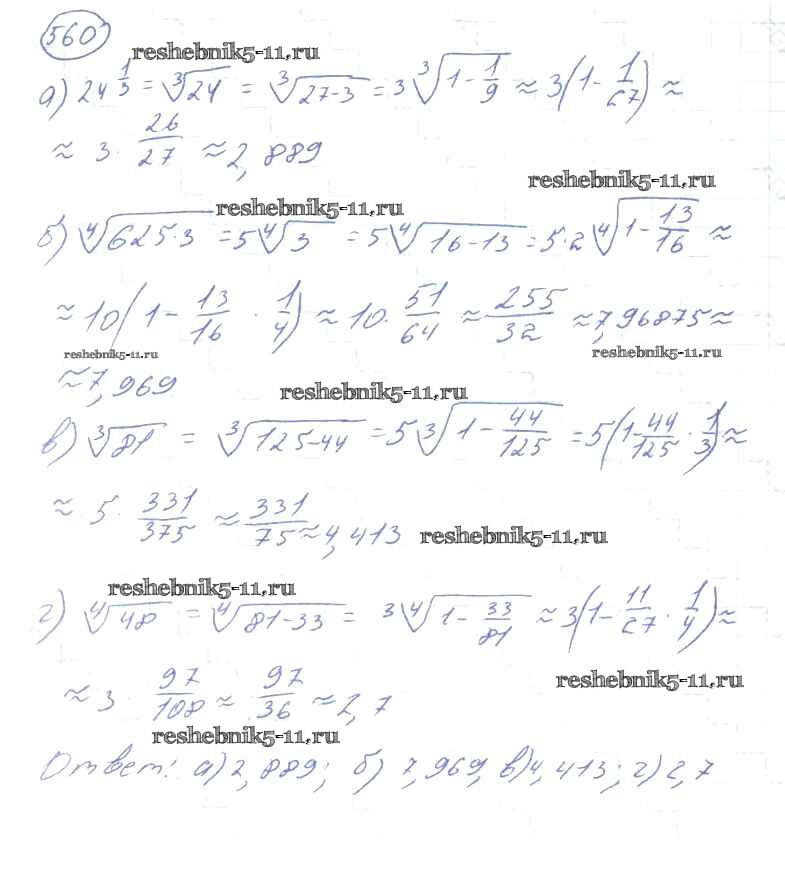 560
reshebnik5-11.ru
а) 24^{1/3} = ∛24 = ∛(27-3) = 3 ∛(1-1/9) ≈ 3(1-1/27) ≈
≈ 3 · 26/27 ≈ 2,889
reshebnik5-11.ru
reshebnik5-11.ru
б) ∜(625·3) = 5∜3 = 5·∜(16-13) = 5·2 ∜(1-13/16) ≈
≈ 10(1-13/16 · 1/4) ≈ 10 · 51/64 ≈ 255/32 ≈ 7,96875 ≈
reshebnik5-11.ru
reshebnik5-11.ru
≈ 7,969
reshebnik5-11.ru
в) ∛81 = ∛(125-44) = 5∛(1-44/125) = 5(1-44/125 · 1/3) ≈
≈ 5 · 331/375 ≈ 331/75 ≈ 4,413
reshebnik5-11.ru
reshebnik5-11.ru
г) ∜48 = ∜(81-33) = 3∜(1-33/81) ≈ 3(1-11/27 · 1/4) ≈
reshebnik5-11.ru
≈ 3 · 97/108 ≈ 97/36 ≈ 2,7
reshebnik5-11.ru
Ответ: а) 2,889; б) 7,969, в) 4,413; г) 2,7